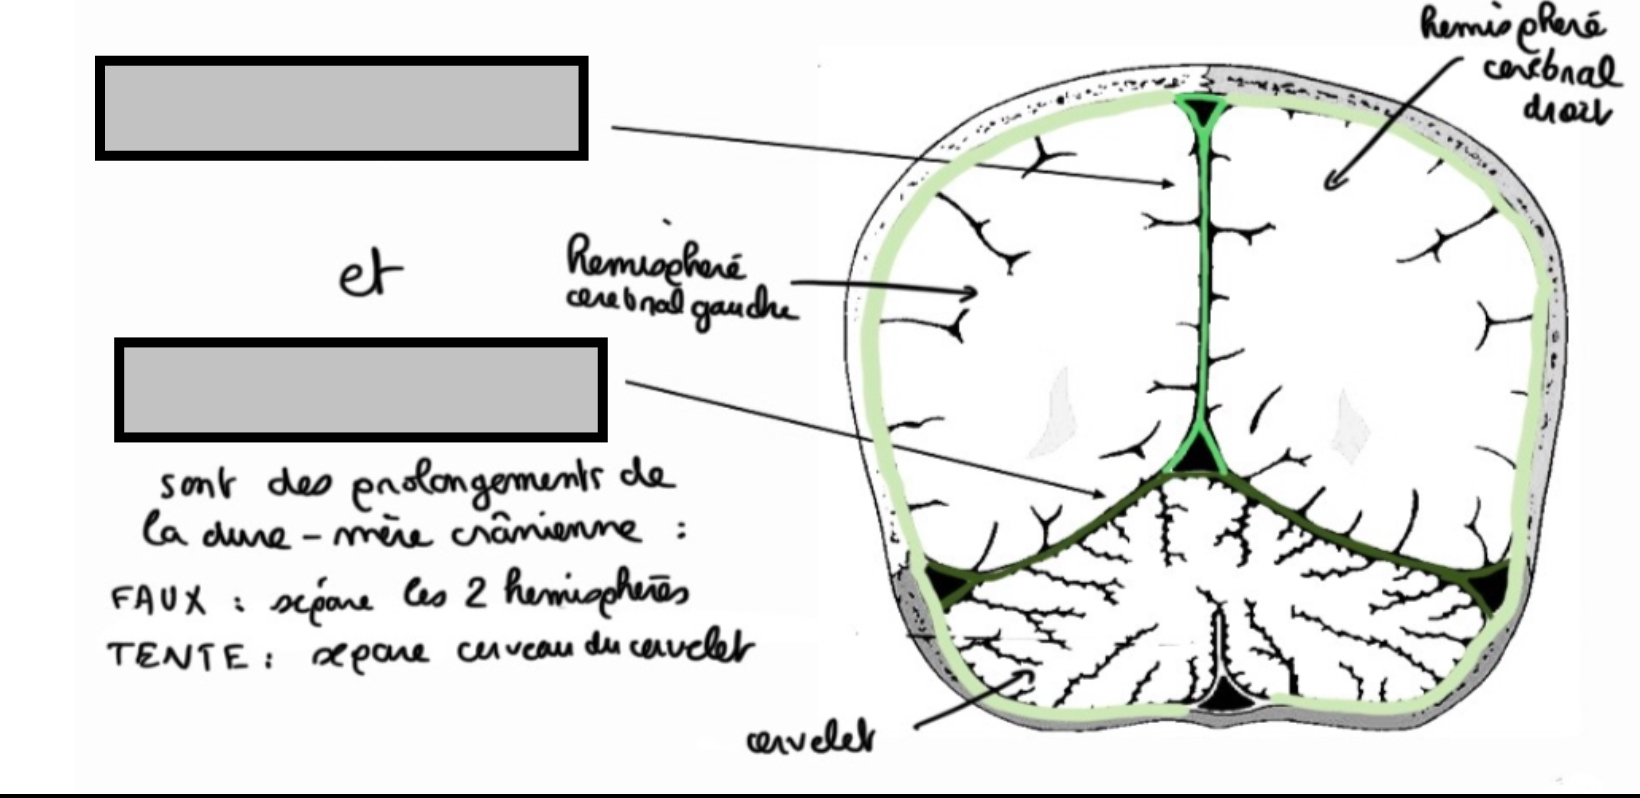 hemispheré
cerébral
droit
et
hemispheré
cerebral gauche
sont des prolongements de
la dure-mère crânienne :
FAUX : sépare les 2 hemispheres
TENTE : separe cerveau du cervelet
cervelet